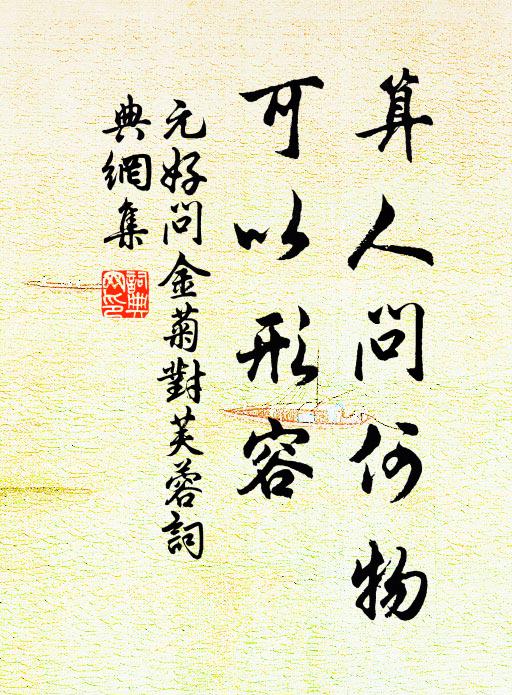 算人問何物
可以形容
元好問金菊對芙蓉詞
典網集
詞典
网印